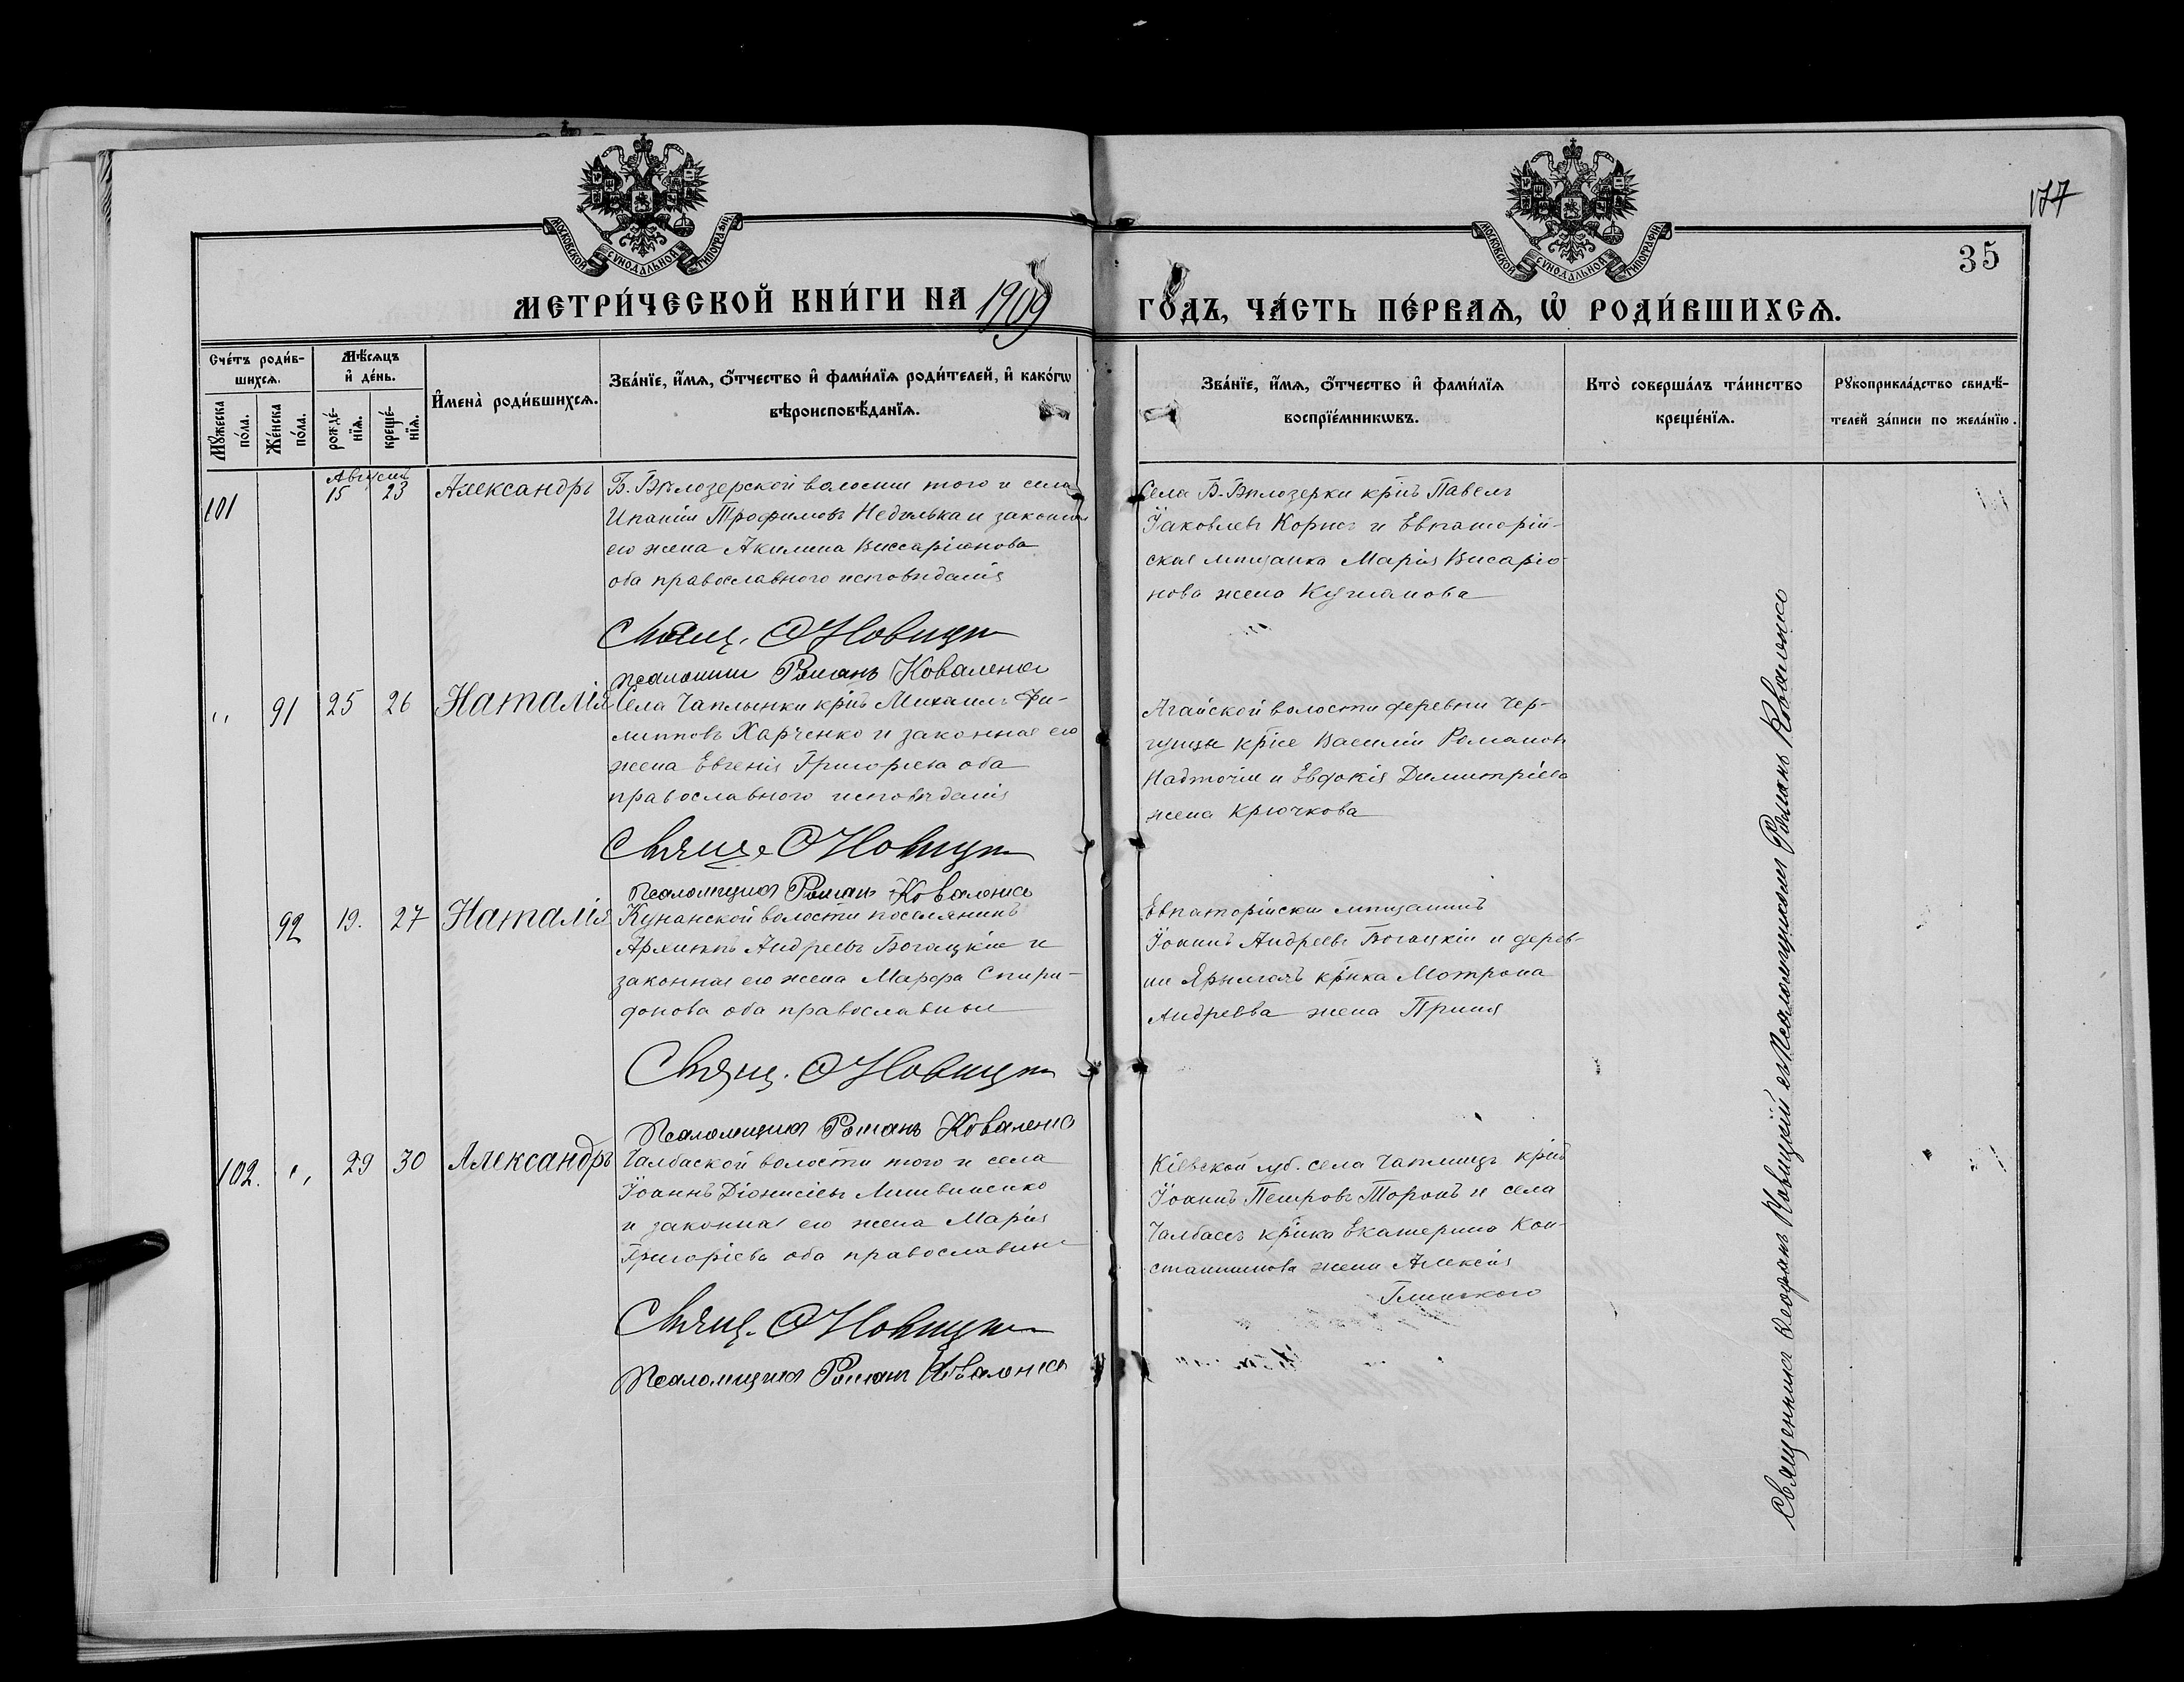 МОСКОВСКОЙ СУНОДАЛЬНОЙ ТИПОГРАФІИ
МОСКОВСКОЙ СУНОДАЛЬНОЙ ТИПОГРАФІИ
177
35
МЕТРИ́ЧЕСКОЙ КНИ́ГИ НА 1909 ГО́ДЪ, ЧА́СТЬ ПЕ́РВАѦ, Ѡ҆ РОДИ́ВШИХСѦ.
Сче́тъ роди́в-
шихсѧ.
Мꙋ́жеска по́ла.
Же́нска по́ла.
Мѣ́сѧцъ
и҆ де́нь.
рожде́-
нїѧ.
креще́-
нїѧ.
И҆мена̀ роди́вшихсѧ.
Зва́нїе, и҆́мѧ, ѻ҆́тчество и҆ фами́лїѧ роди́телей, и҆ како́гѡ
вѣроисповѣ́данїѧ.
Зва́нїе, и҆́мѧ, ѻ҆́тчество и҆ фами́лїѧ
воспрїе́мникѡвъ.
Кто̀ соверша́лъ та́инство
креще́нїѧ.
Рꙋкоприкла́дство свидѣ́-
телей за́писи по жела́нїю.
Августъ
101 15 23 Александръ
Б. Бѣлозерской волости того и села
Ипатій Трофимовъ Недилька и законная
его жена Акилина Виссаріонова
оба православного исповѣданія
Свящ. Ѳ Новицкій
псаломщ Романъ Коваленко
Села Б-Бѣлозерки крнъ Павелъ
Іаковлевъ Корнсъ и Евпаторій-
ская мѣщанка Марія Висаріо-
нова жена
" 91 25 26 Наталія
Села Чаплынки крнъ Михаилъ Фи-
липповъ Харченко и законная его
жена Евгенія Григорьева оба
православного исповѣданія
Свящ. Ѳ Новицкій
Псаломщикъ Романъ Коваленко
Агайской волости деревни Чер-
крне Василій Романовъ
Надточій и Евдокія Димитріева
жена Крючкова
92 19. 27 Наталія
Кунанской волости поселянинъ
Архиппъ Андреевъ Богацкій и
законная его жена Марфа Спири-
донова оба православные
Свящ. Ѳ Новицкій
Псаломщикъ Романъ Коваленко
Евпаторійскій мѣщанинъ
Іоаннъ Андреевъ Богацкій и дерев-
ни Ярылгачъ крнка Мотрона
Андреева жена
102. " 29 30 Александръ
Чалбаской волости того и села
Іоаннъ Діонисіевъ Литвиненко
и законная его жена Марія
Григоріева оба православные
Свящ. Ѳ Новицкій
Псаломщикъ Романъ Коваленко
Кіевской губ. села крнъ
Іоаннъ Петровъ и села
Чалбасъ крнка Екатерина Кон-
стантинова жена Алексія
Глинского
Священникъ Ѳеофанъ Новицкій съ Псаломщикомъ Романъ Коваленко